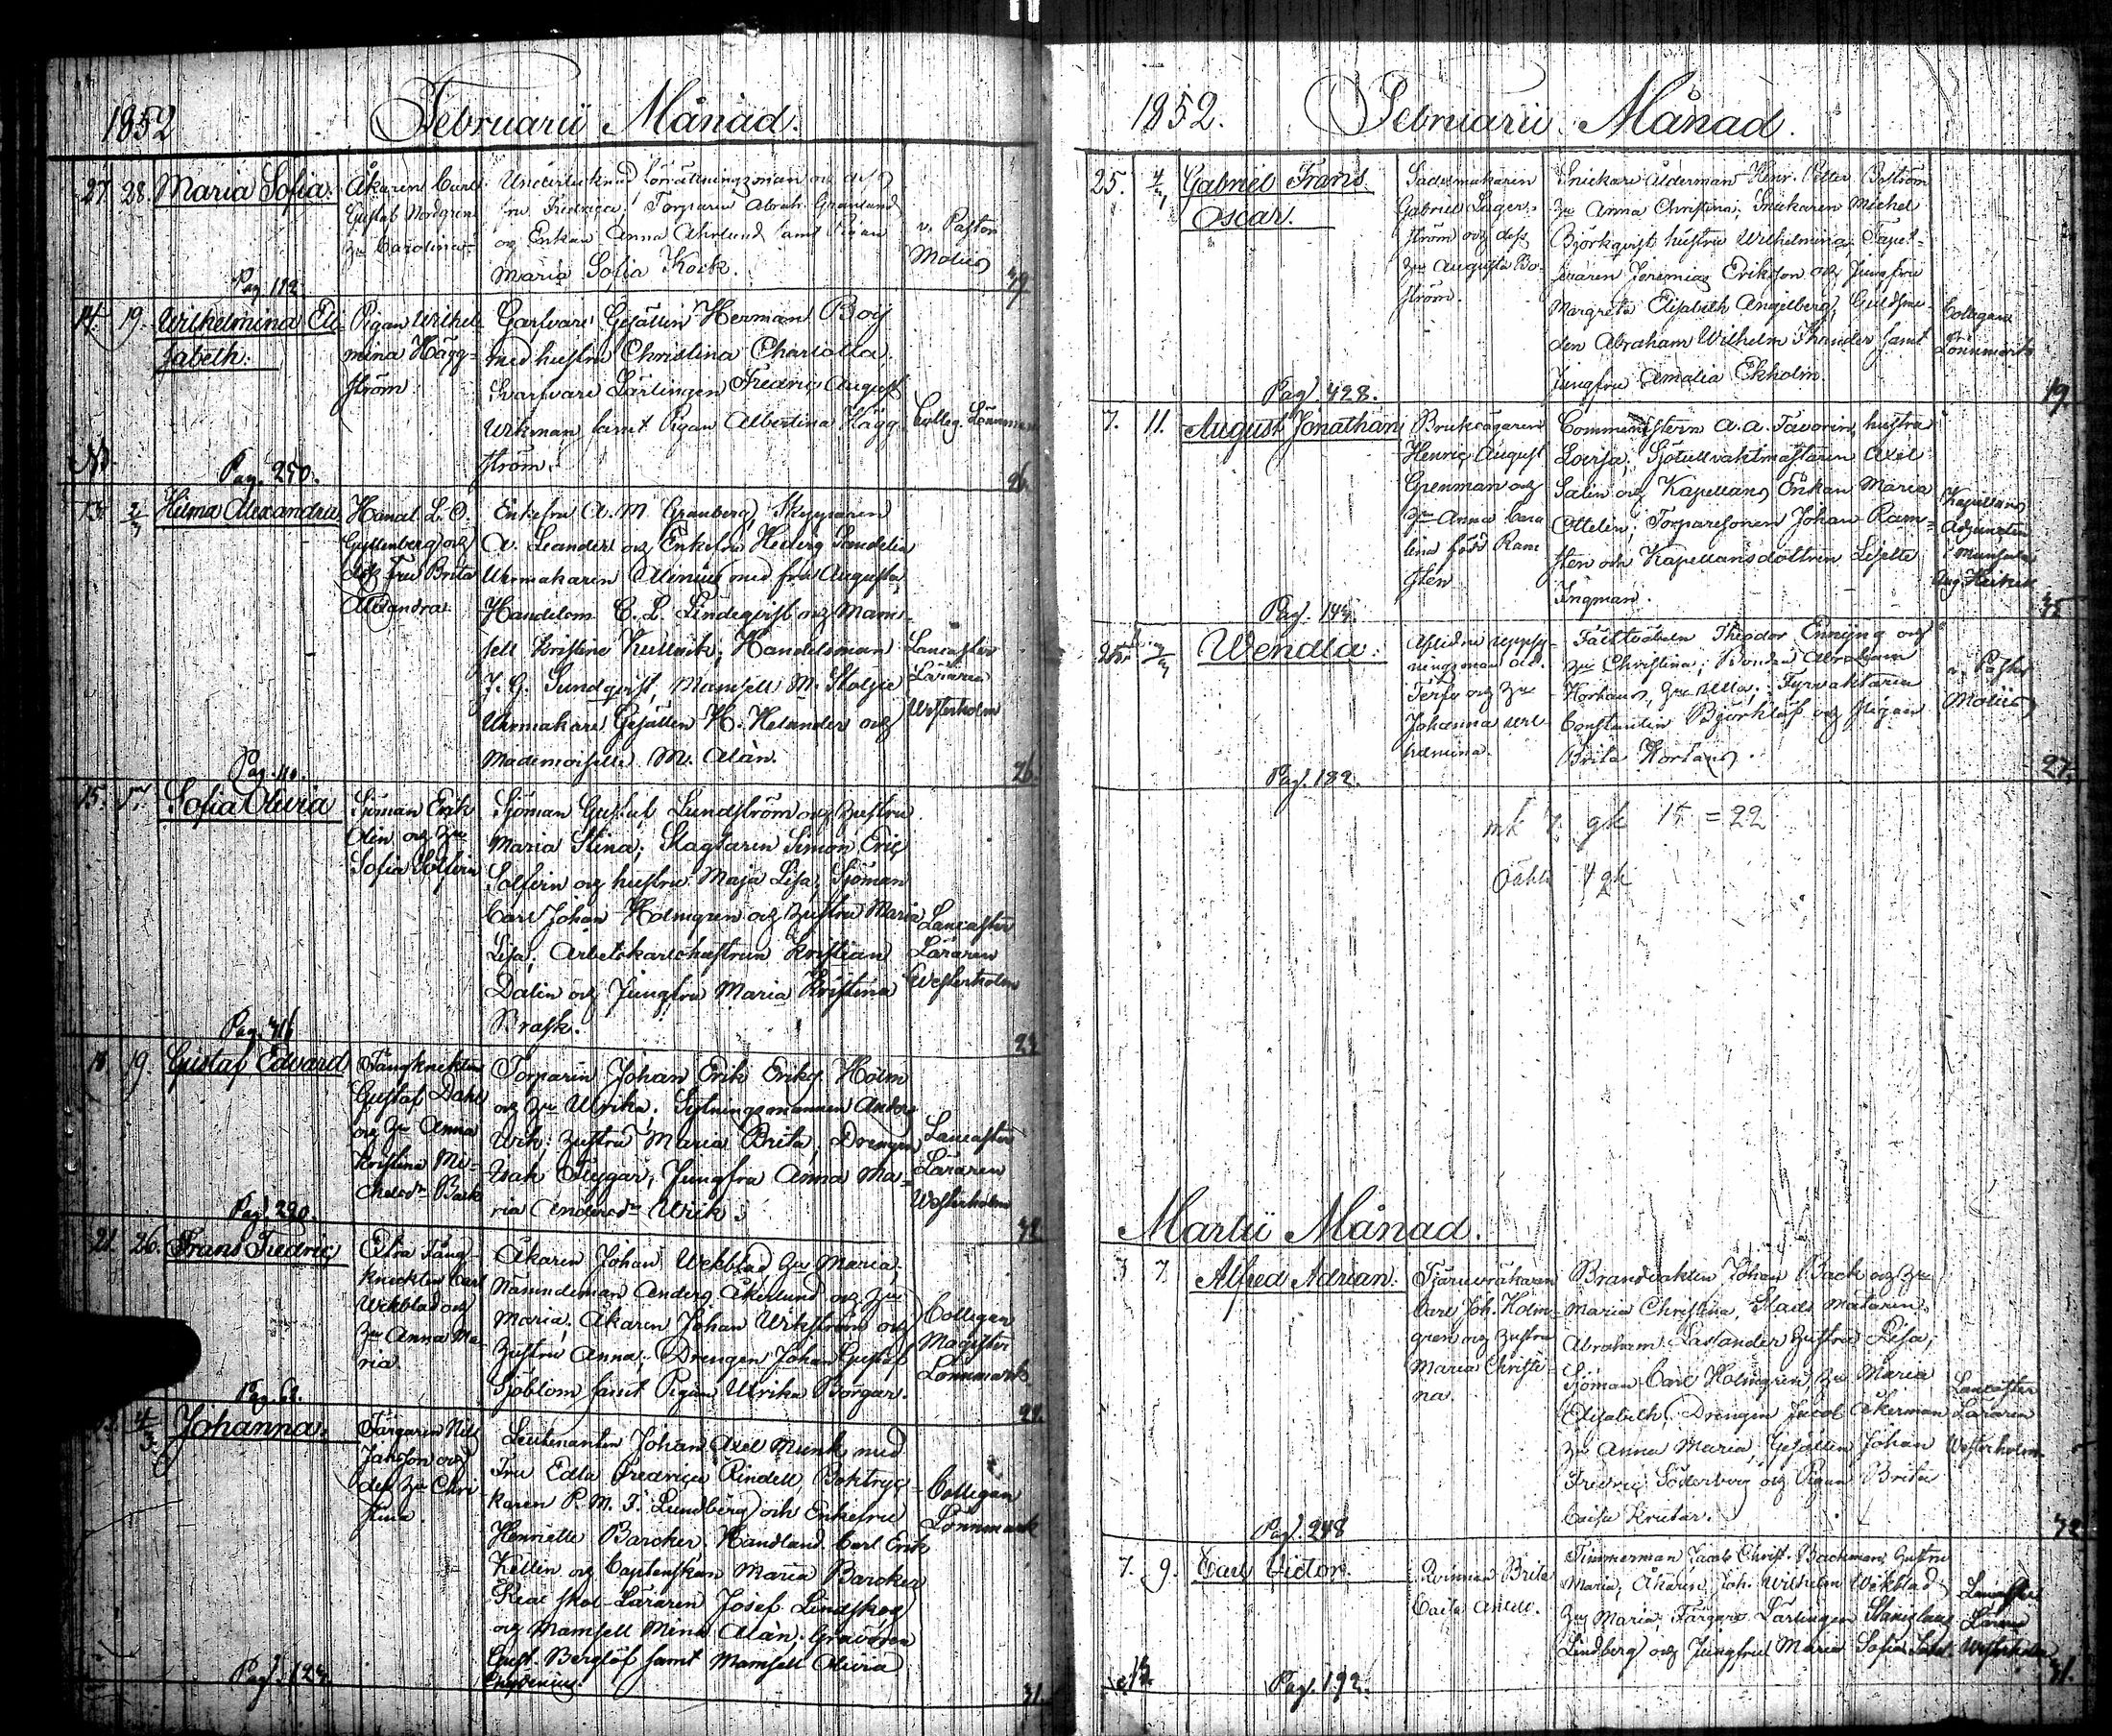 1852
Februarii Månad.
27. 28. Maria Sofia.
Åkaren Carl
Gustaf Nordgren
Carolina
Pag. 112
fru Fredrica; Torparen Abrah. Granlund
og Enkan Anna Ahrlund samt Pigan
Maria Sofia Kock.
v. Pastor
Molius
14. 19. Wilhelmina Eli-
sabeth.
Pigan Wilhel-
mina Hägg-
ström
Pag. 250.
Garfvare Gesällen Herman Boij
med hustru Christina Charlotta
Svarfvare Lärlingen Fredric August
Wikman samt Pigan Albertina Hägg-
ström.
Colleg. Lönnmark
26.
13. 2/3 Hilma Alexandra
Handl. L. O.
Gyllenberg og
dess Fru Brita
Alexandra.
Pag. 110.
Enkefru A. M. Granberg, Skepparen
A. Leander og Enkefru Hedvig Sandelin
Urmakaren Alenius med fru Augusta,
Handelsm. C. L. Lindeqvist og Mam-
sell Kristine; Handelsman
J. G. Sundqvist, Mamsell M.
Urmakare Gesällen K. Helander og
Mademoiselle M. Alàn.
Lancaster
Läraren
Westerholm
26.
15. 17. Sofia Olivia
Sjöman Erik
Alin og Hu
Sofia Solfvin
Pag. 416
Sjöman Gustaf Lundström og Hustru
Maria Stina; Slagtaren Simon Eric
Solfvin og hustru Maja Lisa; Sjöman
Carl Johan Holmgren og Hustru Maria
Lisa; Arbetskarlshustrun Kristian
Dalin og Jungfru Maria Kristina
Brask.
Lancaster
Läraren
Westerholm
23
19. Gustaf Edvard
Fångknekten
Gustaf Dahl
og Hu Anna
Kristina Mi-
chelsdr Back
Pag. 290.
Torparen Johan Erik Holm
og Hu Ulrika; Anders
Wik; Hustru Maria Brita; Drengen
Isak Flygar; Jungfru Anna Ma-
ria Andersdr Wiik.
Lancaster
Läraren
Westerholm
21. 26. Frans Fredric
Extra Fång-
knekten Carl
Wekblad og
Hu Anna Ma-
ria.
Åkaren Johan Wekblad Hu Maria;
Nämndeman Anders Åkerlund og Hu
Maria; Åkaren Johan Wikström og
Hustru Anna; Drengen Johan Gustaf
Sjöblom samt Pigan Ulrika Borgar.
Collegan
Magister
Lönnmark
4/3 Johanna.
Färgaren Nils
Jansson og
dess Hu Chri
stina.
Pag. 124
Lieutenanten Johan Axel Munk med
Fru Edla Fredrica Rindell, Boktryc-
karen P. M. J. Lundberg och Enkefru
Henriette Barcker. Handland. Carl Erik
Kellin og Captenskan Maria Barcker
Real skol-Läraren Josef Lindskog
og Mamsell Mina Alàn; Gravören
Gust. Berglöf samt Mamsell Olivia
Chydenius.
Collegan
Lönnmark
31.
1852.
Februarii Månad.
25. 4/3 Gabriel Frans
Oscar.
Sadelmakaren
Gabriel Lager-
ström og dess
Hu Augusta Bo-
ström.
Pag. 428.
Snickare Ålderman Henr. Petter Boström
Hu Anna Christina; Snickaren Michel
Björkqvist hustru Wilhelmina; Tapet-
seraren Jeremias Erikson og Jungfru
Margreta Elisabeth Angelberg; Guldsme-
den Abraham Wilhelm Thunder samt
Jungfru Amalia Ekholm.
Collegan
Lönnmark
19.
7. 11. August Jonathan
Bruksägaren
Henric August
Grenman og
Hu Anna Caro
lina född Ram
sten
Pag. 144.
Comministern A. A. Favorin, hustru
Lovisa; Sjötullvaktmästaren Axel
Salin og Kapellans Enkan Maria
Ottelin; Torparesonen Johan Ram-
sten och Kapellansdottren Lisette
Ingman.
Kapellans
Adjuncten
i Munsala
25. Wendla.
Johanna Wil
helmina.
Pag. 182.
Theodor Ennqvist og
Hu Christina; Bonden Abraham
Kortans, Hu Ulla; Fyrvaktaren
Constantin Björklöf og Pigan
Brita Kortans.
v. Pastor
Molius
27.
mk 7 gk 15 = 22
4 gk
Martii Månad.
3 7. Alfred Adrian.
Carl Joh. Holm-
gren og Hustru
Maria Christi-
na.
Pag. 248
Brandvakten Johan Back og Hu
Maria Christina, Stads mätaren
Abraham Lassander Hustru Lisa;
Sjöman Carl Holmgren, Hu Maria
Elisabeth, Drengen Jacob Åkerman
Hu Anna Maria, Gesällen Johan
Fredric Söderberg og Pigan Brita
Caisa Krutar.
Lancaster
Läraren
Westerholm
32
7. 9. Carl Victor.
Qvinnan Brita
Caisa
Pag. 192.
Timmerman Jacob Christ. Backman, Hustru
Maria; Åkaren Joh. Wilhelm Wekblad
Hu Maria; Färgare Lärlingen Stanislaus
Lindberg og Jungfru Maria Sofia
Lancaster
Läraren
Westerholm
31.